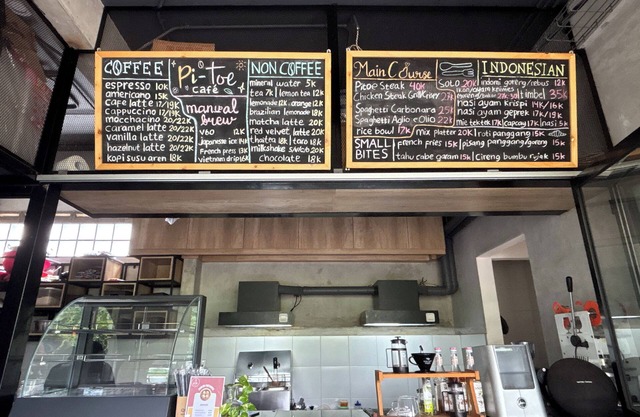 COFFEE
espresso 10K
americano 15K
cafe latte 17/19K
cappuccino 17/19K
maccacino 20/22K
caramel latte 20/22K
vanilla latte 20/22K
hazelnut latte 20/22K
kopi susu aren 18K
Pi-Toe
café
manual
brew
V60 12K
Japanese ice
French press 13K
vietnam drip
NON COFFEE
mineral water 5K
tea 7K | lemon tea 12K
lemonade 12K orange 12K
brazilian lemonade 18K
matcha latte 20K
red velvet latte 20K
thaitea 18K taro 18K
milkshake 20K
chocolate 18K
Main Course
Prop Steak 40K
Chicken Steak
Spaghetti Carbonara
Spaghetti Aglio e Olio 22K
rice bowl 17K / mix platter 20K
SMALL
BITES
french fries 15K | pisang panggang/goreng 15K
tahu cabe garam 15K | cireng bumbu rujak 15K
INDONESIAN
Soto 20K
indomi goreng/rebus 12K
iga sambal 35K
nasi ayam krispi 14K/16K
nasi ayam geprek 17K/19K
mie tektek 17K | capcay 17K | nasi 5K
roti panggang 15K